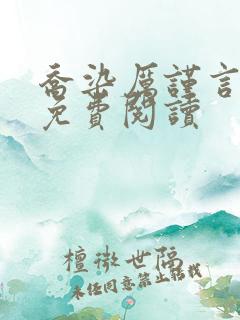 喬染厲謹言
免費閱讀
檀微世隔
未任同意禁止轉載